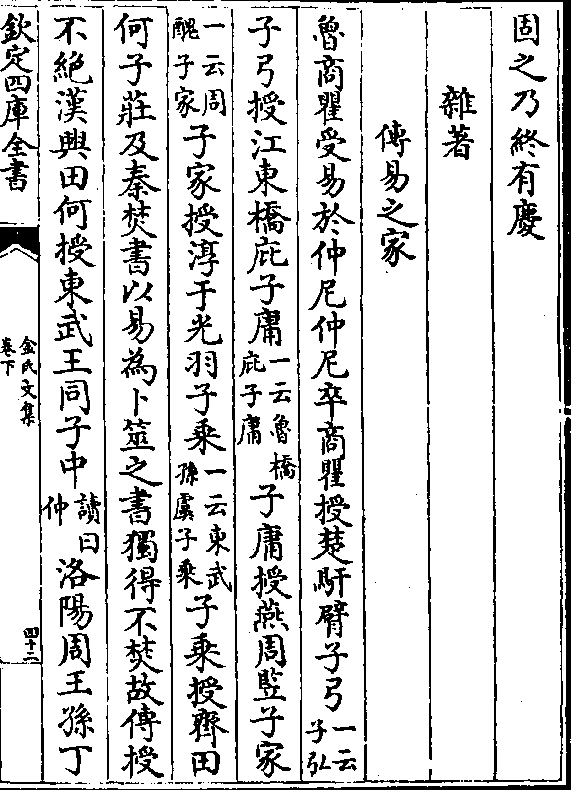 固之乃終有慶
雜著
傳易之家
魯商瞿受易於仲尼仲尼卒商瞿授楚馯臂子弓一云子弘
子弓授江東橋庇子庸一云魯橋庇子庸子庸授燕周豎子家
一云周醜子家子家授淳于光羽子乘一云東武孫虞子乗子乗授齊田
何子莊及秦焚書以易為卜筮之書獨得不焚故傳授
不絶漢興田何授東武王同子中讀曰仲洛陽周王孫丁
欽定四庫全書
金氏文集
卷下
四十二